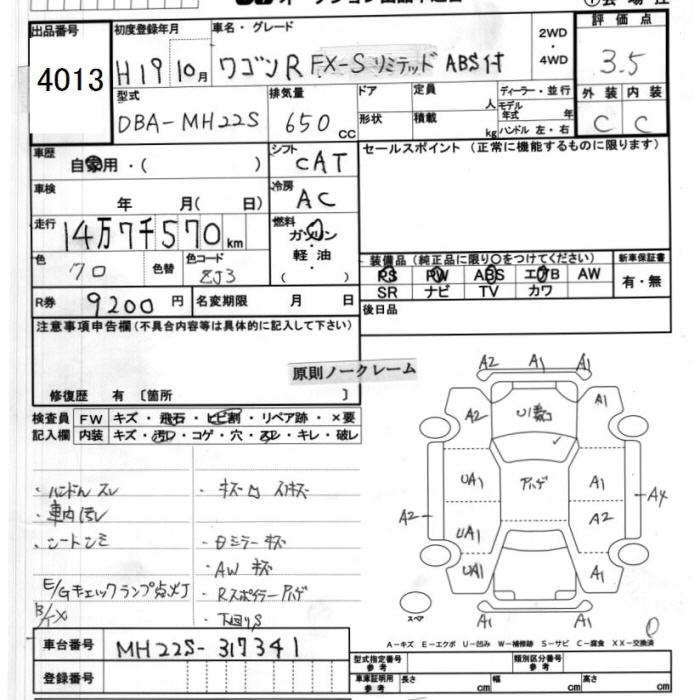 出品番号 初度登録年月 車名・グレード 2WD ・ 4WD 評価点
4013 H19 10月 ワゴンR FX-Sリミテッド ABS付 3.5
型式 排気量 ドア 定員 人 ディーラー・並行 外装 内装
DBA-MH22S 650 CC 形状 積載 kg モデル年式 年 ハンドル 左・右 C C
車歴 自家用・( ) シフト CAT セールスポイント(正常に機能するものに限ります)
車検 年 月( 日) 冷房 AC
走行 14万7千570 km 燃料 ガソリン 軽油 ( )
色 クロ 色替 色コード ZJ3 装備品(純正品に限り○をつけてください) 新車保証書
PS PW ABS エアB AW 有・無
SR ナビ TV カワ
R券 9200円 名変期限 月 日 後日品
注意事項申告欄(不具合内容等は具体的に記入して下さい)
原則ノークレーム
修復歴 有 〔箇所 〕
検査員 FW キズ・飛石・ヒビ割・リペア跡・×要
記入欄 内装 キズ・汚レ・コゲ・穴・スレ・キレ・破レ
・ハンドルスレ ・キズ凹 スリキズ
・車内汚レ
・シートシミ ・Dミラーキズ
・AW キズ
E/Gチェックランプ点灯 ・Rスポイラーハゲ
・下回りS
A2 A1 A1
A2 U1 A1
UA1 ハゲ A1 A4
A2 UA1 A2
UA1 A1
A1 A1
スペア
A-キズ E-エクボ U-凹み W-補修跡 S-サビ C-腐食 XX-交換済
車台番号 MH22S-317341
型式指定番号 参考 類別区分番号 参考
登録番号 車庫証明用 参考 長さ cm 幅 cm 高さ cm